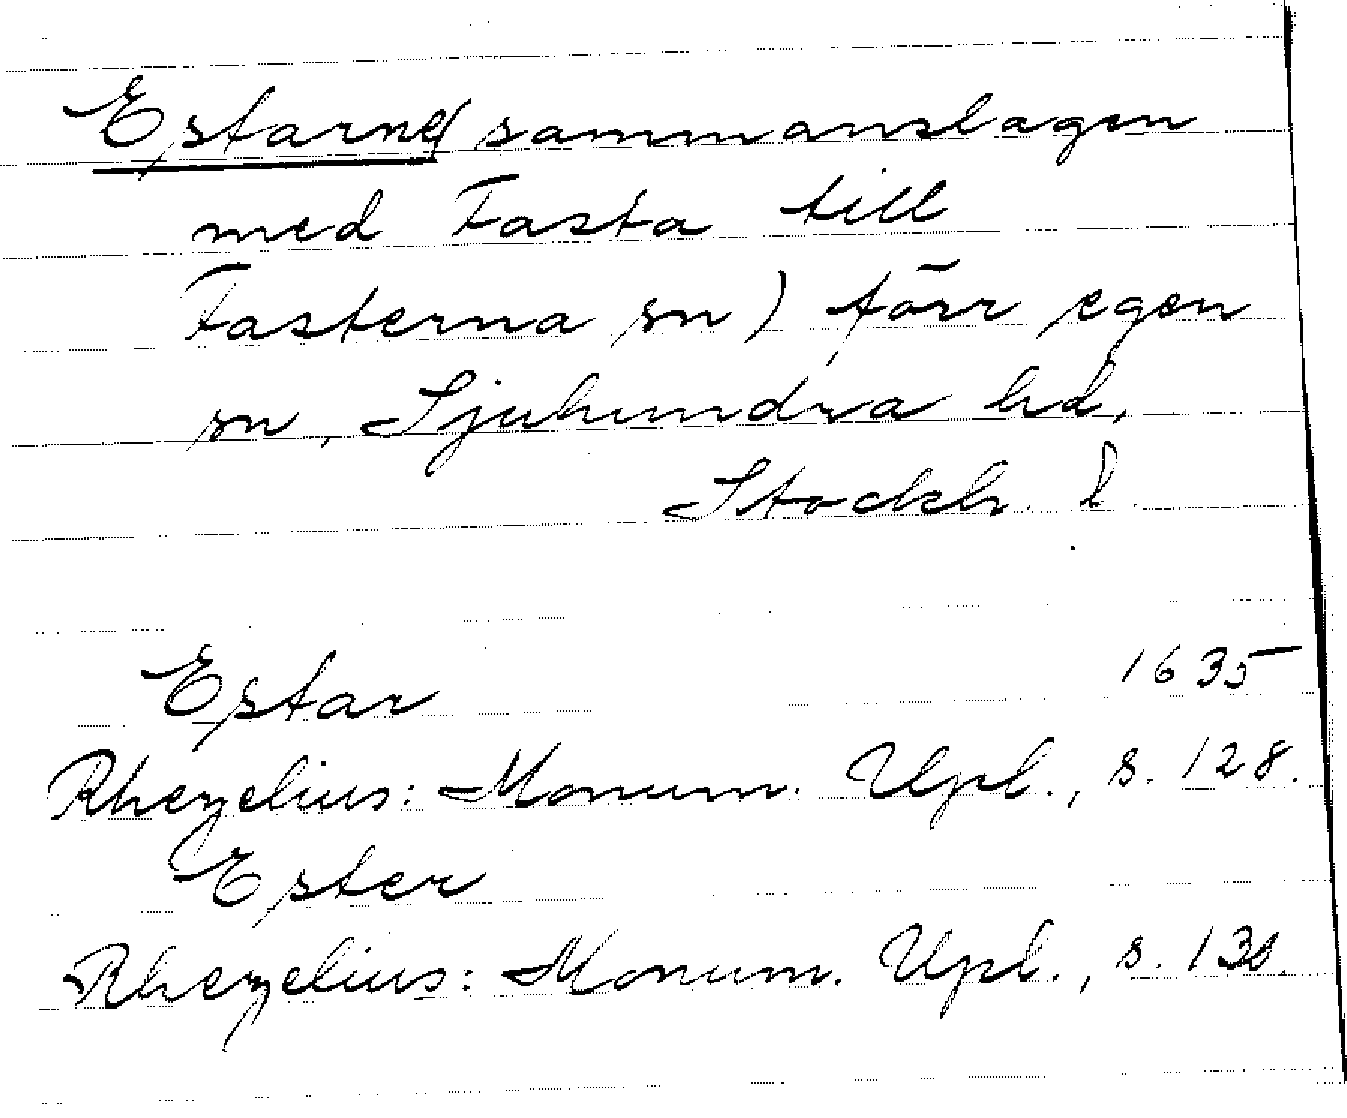 Estarne (sammanslagen
med Fasta till
Fasterna sn) förr egen
sn, Sjuhundra hd,
Stockh. l.
Estar 1635
Rhezelius: Monum. Upl., s. 128.
Ester
Rhezelius: Monum. Upl., s. 130.